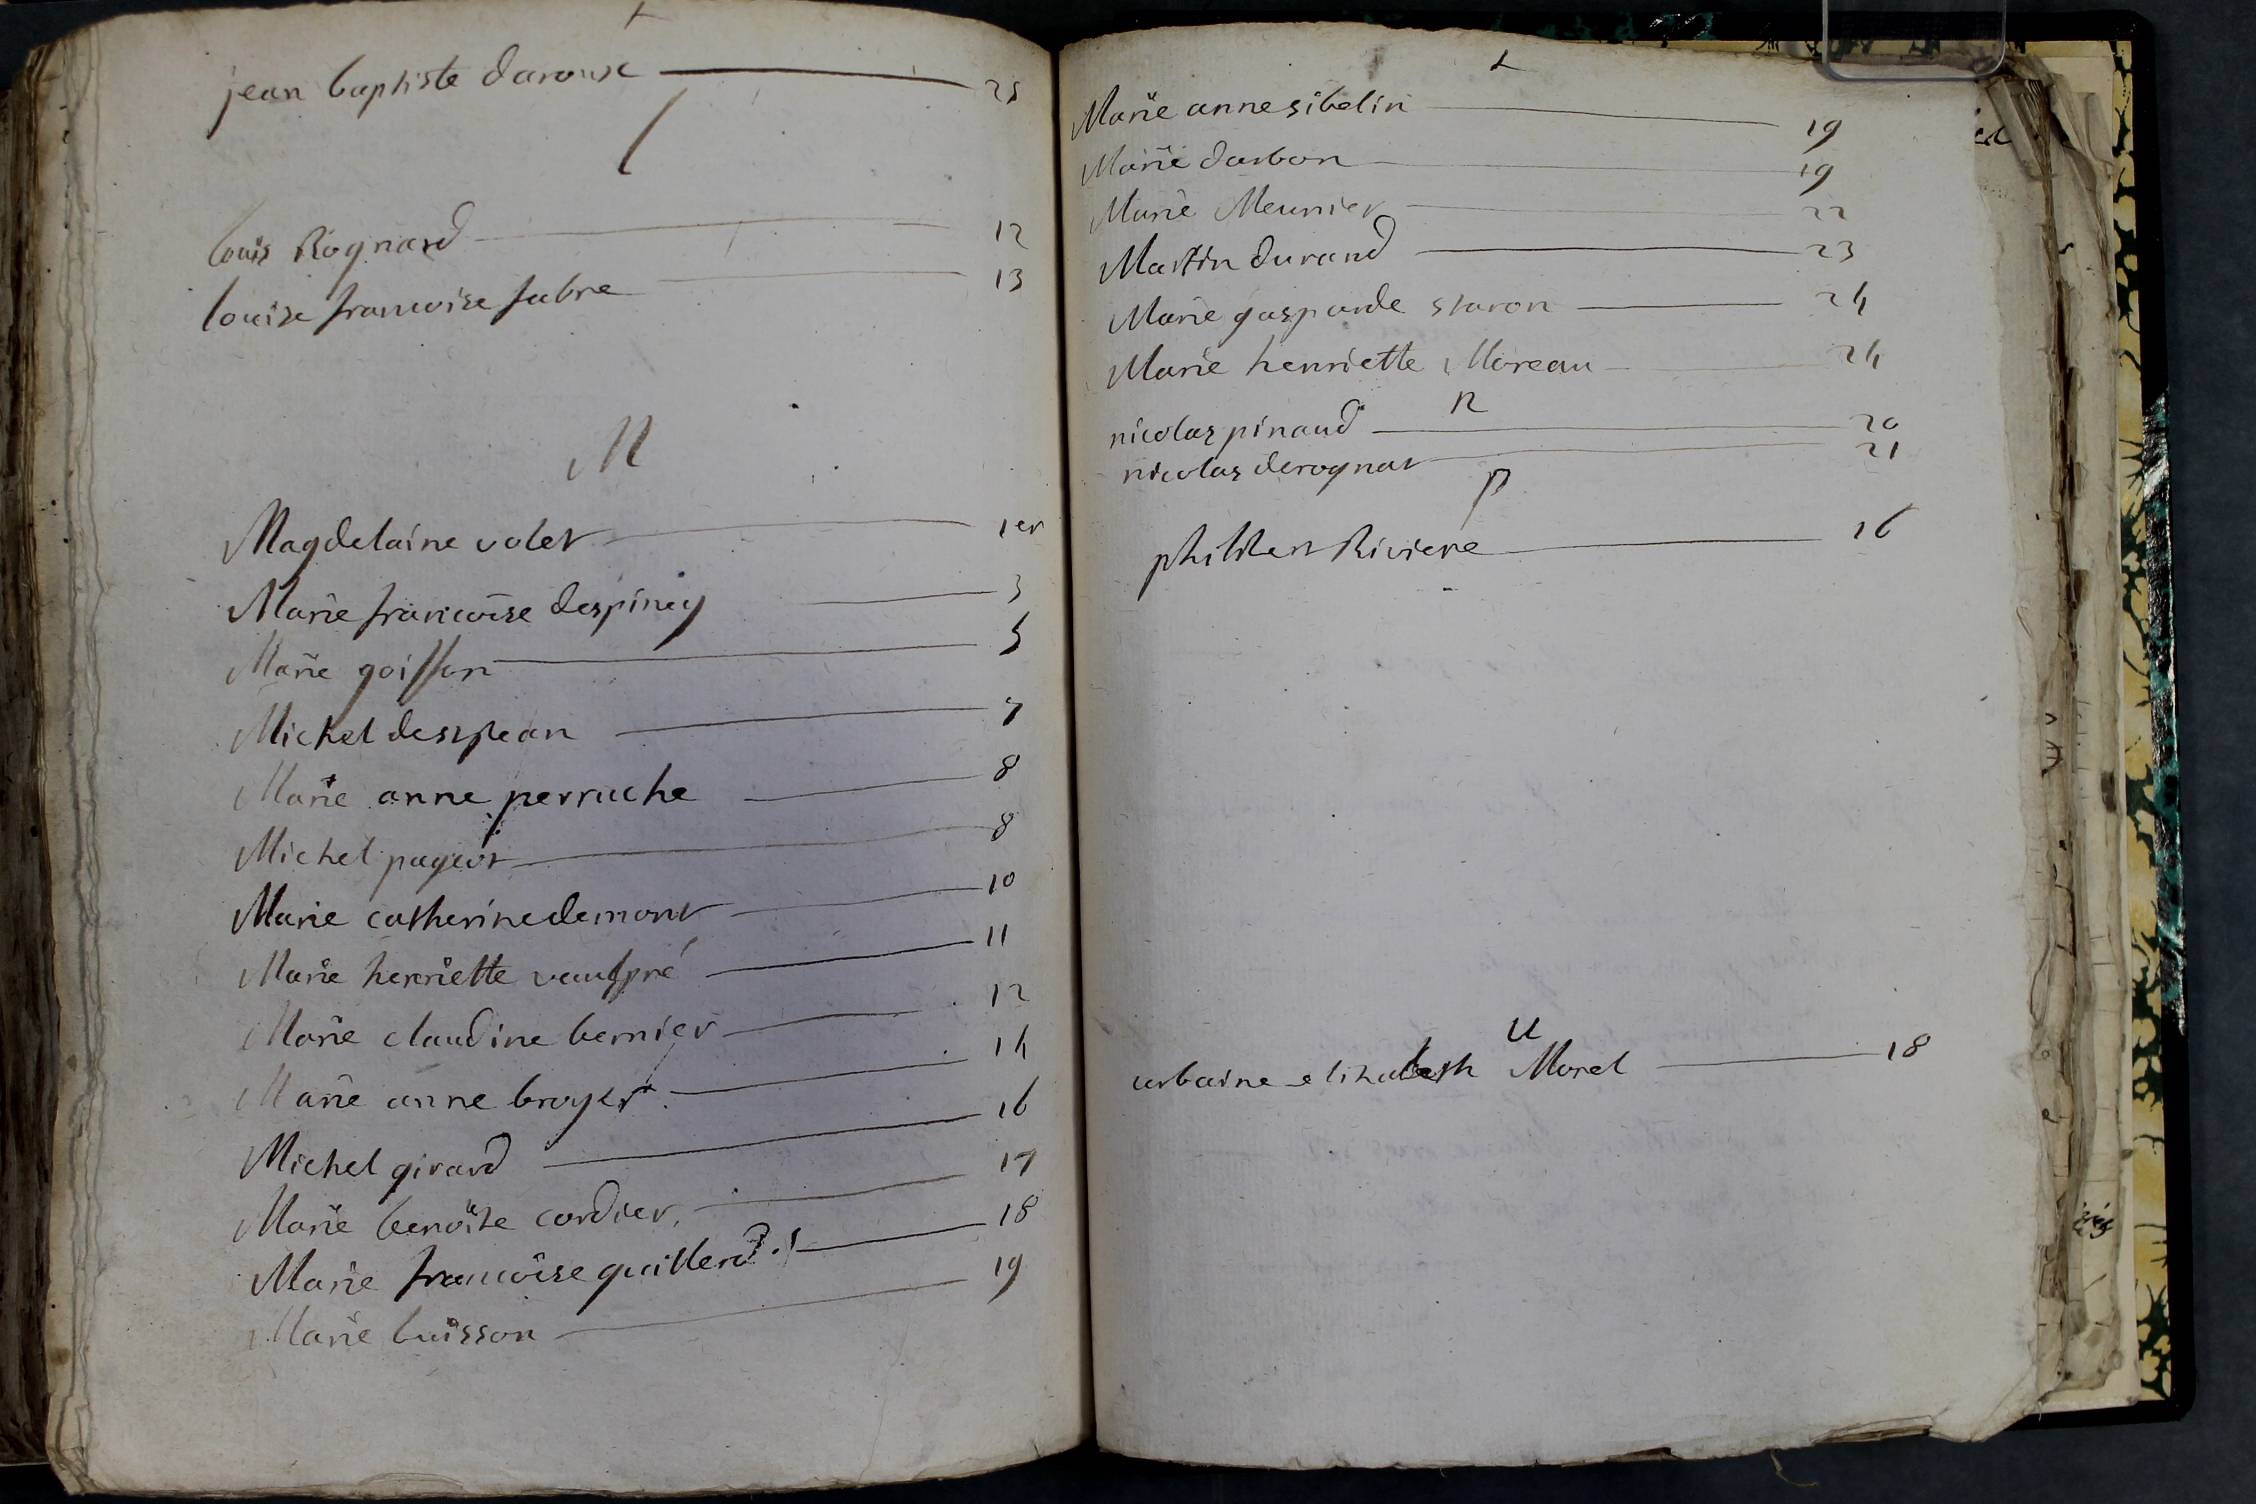 jean baptiste daroux 25
l
louis Rognard 12
louise francoise fabre 13
M
Magdelaine volet 1er
Marie francoise despiney 3
Marie goiffon 5
Michel desplean 7
Marie anne perruche 8
Michel pageot 8
Marie catherine demont 10
Marie henriette vaulpré 11
Marie claudine bernier 12
Marie anne broyer 14
Michel girard 16
Marie benoite cordier 17
Marie francoise guillerd 18
Marie buisson 19
Marie anne sibelin 19
Marie darbon 19
Marie Meunier 22
Martin durand 23
Marie gasparde staron 24
Marie henriette Moreau 24
n
nicolas pinaud 20
nicolas derognat 21
p
philibert Riviere 16
u
urbaine elizabeth Morel 18